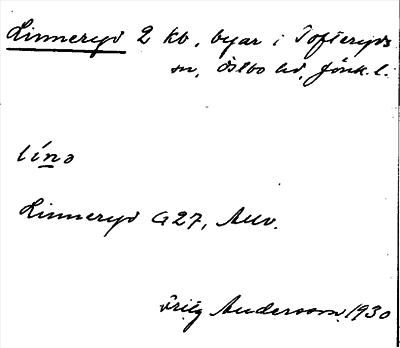 Linneryd 2 kb, byar i Tofteryds
sn, Östbo hd, Jönk. l.
línə
Linneryd G 27, Auv.
Andersson 1930